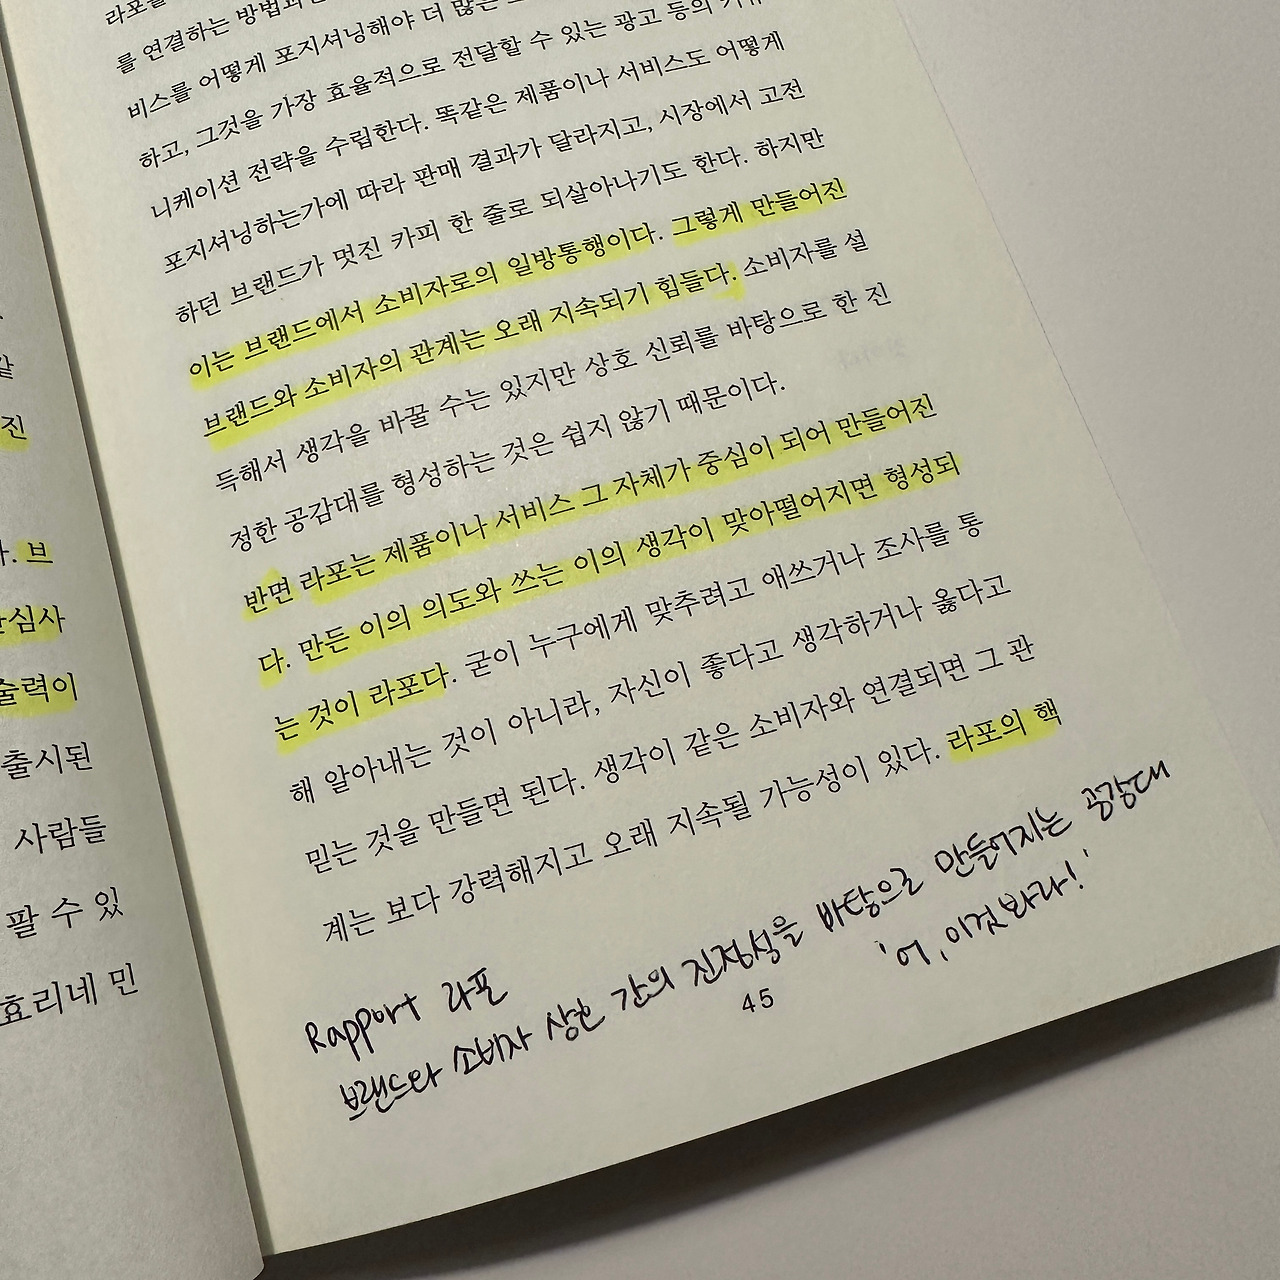 진
브
심사
술력이
출시된
사람들
팔 수 있
효리네 민
라포를
를 연결하는 방법과
비스를 어떻게 포지셔닝해야 더 많은
하고, 그것을 가장 효율적으로 전달할 수 있는 광고 등의 커뮤
니케이션 전략을 수립한다. 똑같은 제품이나 서비스도 어떻게
포지셔닝하는가에 따라 판매 결과가 달라지고, 시장에서 고전
하던 브랜드가 멋진 카피 한 줄로 되살아나기도 한다. 하지만
이는 브랜드에서 소비자로의 일방통행이다. 그렇게 만들어진
브랜드와 소비자의 관계는 오래 지속되기 힘들다. 소비자를 설
득해서 생각을 바꿀 수는 있지만 상호 신뢰를 바탕으로 한 진
정한 공감대를 형성하는 것은 쉽지 않기 때문이다.
반면 라포는 제품이나 서비스 그 자체가 중심이 되어 만들어진
다. 만든 이의 의도와 쓰는 이의 생각이 맞아떨어지면 형성되
는 것이 라포다. 굳이 누구에게 맞추려고 애쓰거나 조사를 통
해 알아내는 것이 아니라, 자신이 좋다고 생각하거나 옳다고
믿는 것을 만들면 된다. 생각이 같은 소비자와 연결되면 그 관
계는 보다 강력해지고 오래 지속될 가능성이 있다. 라포의 핵
Rapport 라포
브랜드와 소비자 상호 간의 진정성을 바탕으로 만들어지는 공감대
'어, 이것 봐라!'
45